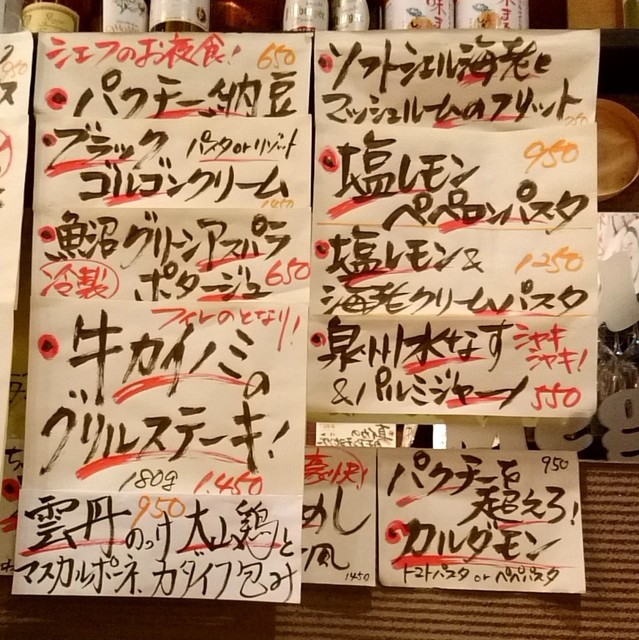 シェフのお夜食! 650
パクチー納豆
ブラック パスタorリゾット
ゴルゴンクリーム
1450
魚沼グリーンアスパラ
冷製 ポタージュ 650
フィレのとなり!
牛カイノミの
グリルステーキ!
180g 1.450
雲丹のっけ大山鶏と 950
マスカルポーネ カダイフ包み
ソフトシェル海老と
マッシュルームのフリット
塩レモン 950
ペペロンパスタ
塩レモン& 1250
海老クリームパスタ
泉州水なす シャキシャキ!
&パルミジャーノ 550
めし
風
1450
パクチーを 950
超えろ!
カルダモン
トマトパスタ or ペペパスタ